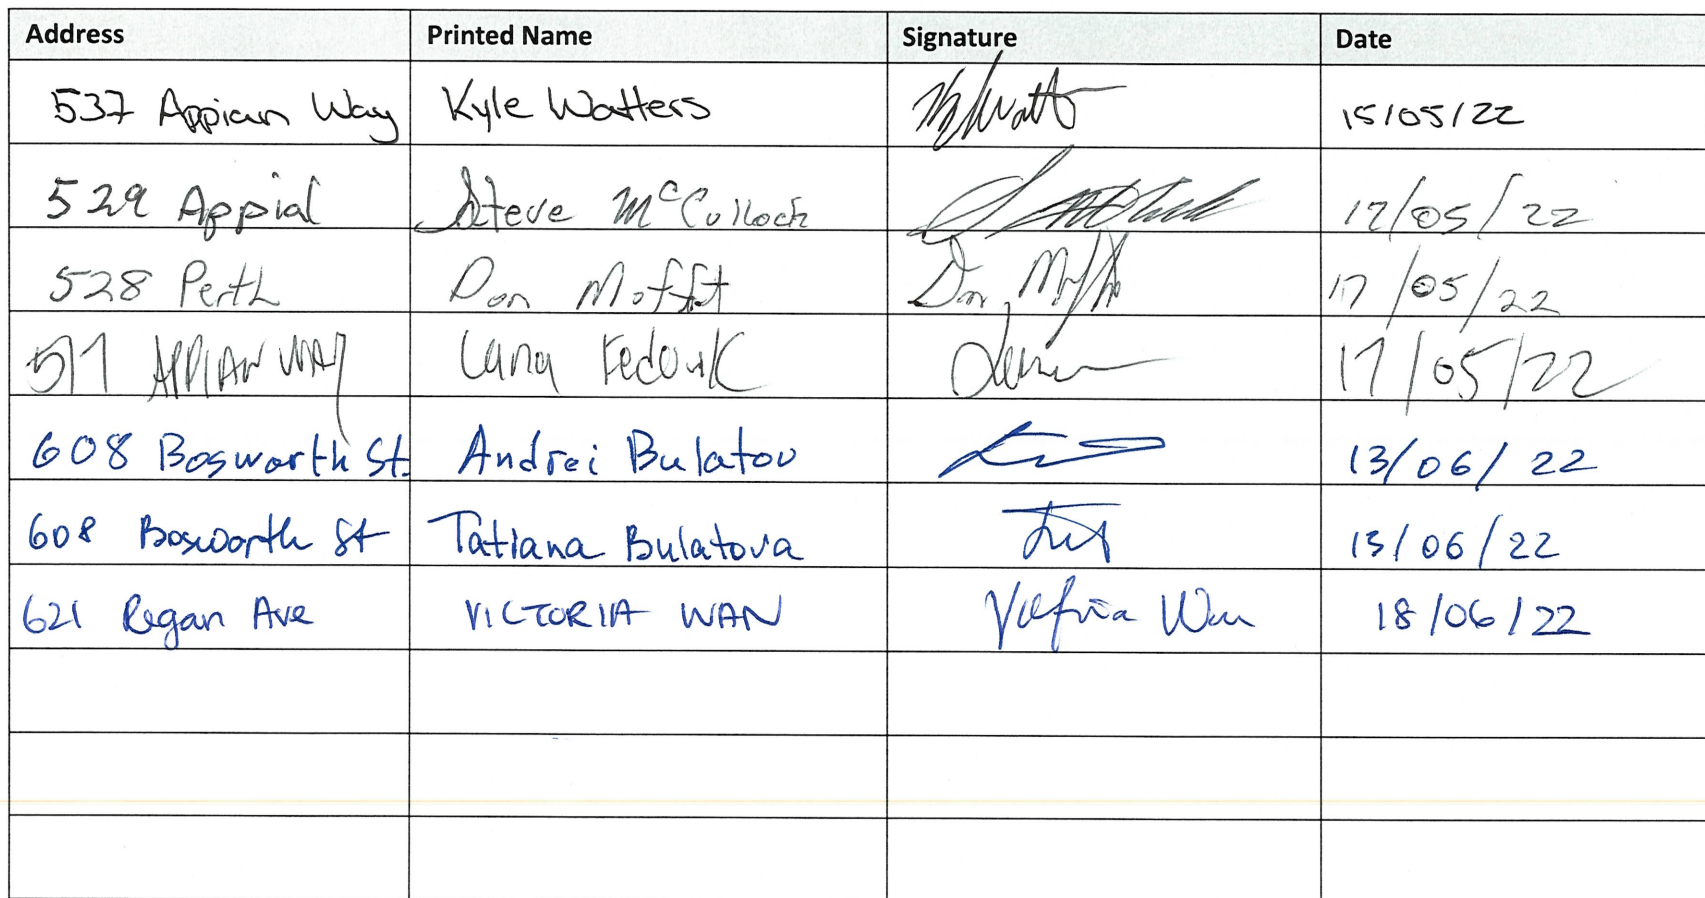 Address Printed Name Signature Date
537 Appian Way Kyle Watters 15/05/22
529 Appial Steve McCulloch 17/05/22
528 Perth Don Moffit 17/05/22
511 APPIAN WAY Lana 17/05/22
608 Bosworth St. Andrei Bulatov 13/06/22
608 Bosworth St Tatiana Bulatova 13/06/22
621 Regan Ave VICTORIA WAN Victoria Wan 18/06/22